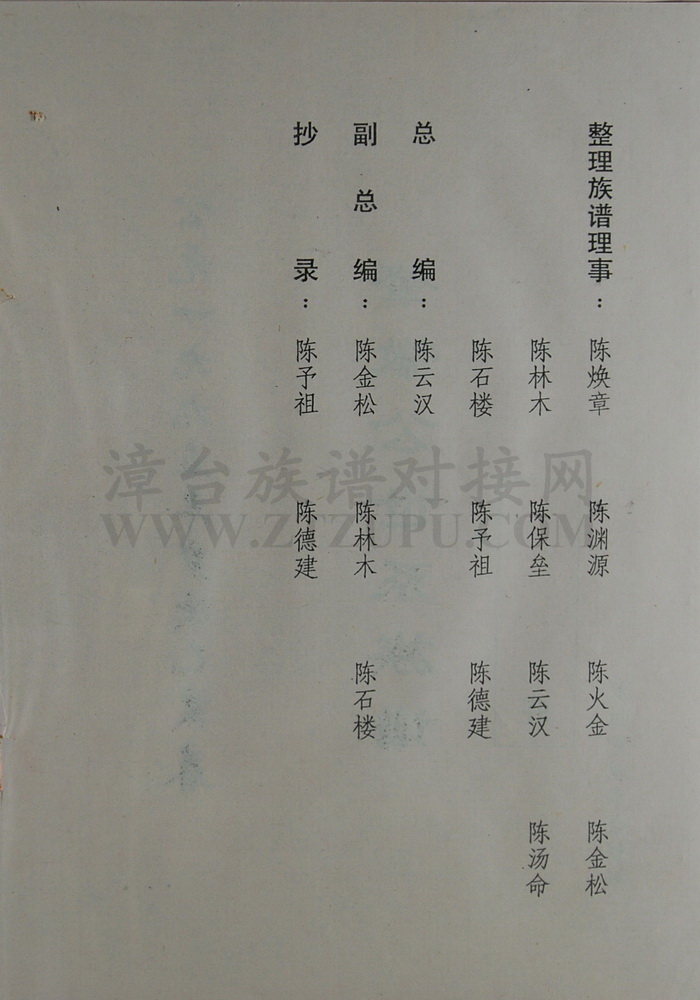 整理族谱理事：陈焕章　陈渊源　陈火金　陈金松
陈林木　陈保垒　陈云汉　陈汤命
陈石楼　陈予祖　陈德建
总编：陈云汉
副总编：陈金松　陈林木　陈石楼
抄录：陈予祖　陈德建
漳台族谱对接网
WWW.ZTZUPU.COM